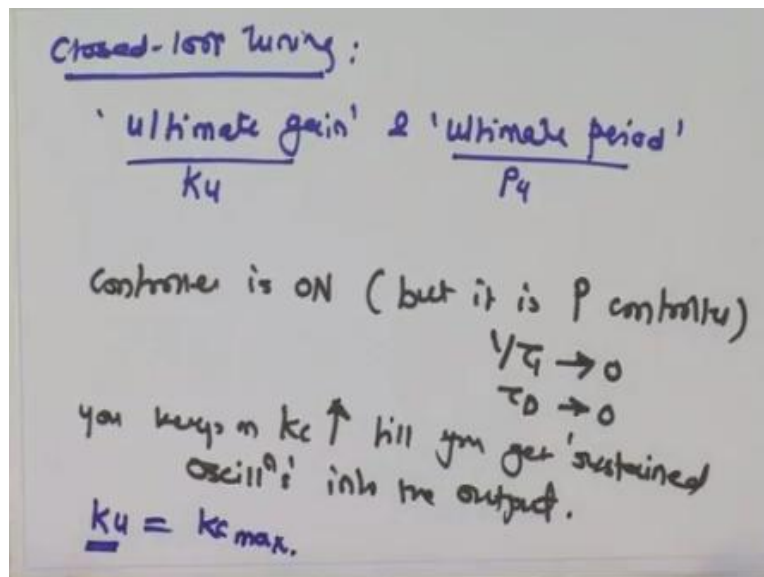 Closed-loop tuning :
'ultimate gain' & 'ultimate period'
Ku Pu
Controller is ON (but it is P controller)
1/τI → 0
τD → 0
you keeps on kc ↑ till you get 'sustained
oscillⁿs' into the output.
ku = kc max.